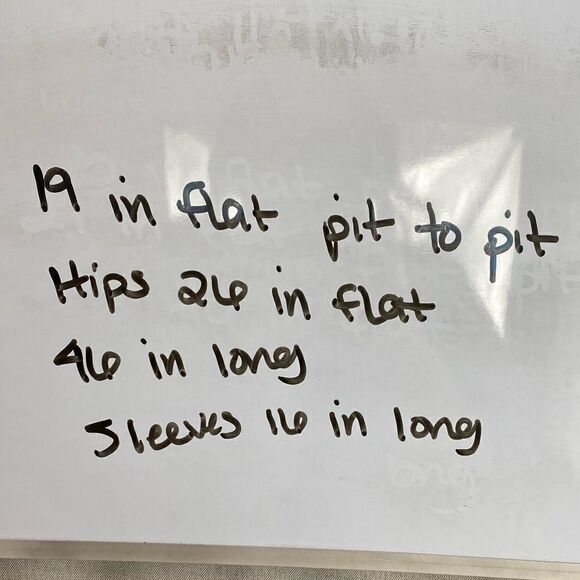 19 in flat pit to pit
Hips 26 in flat
46 in long
Sleeves 16 in long